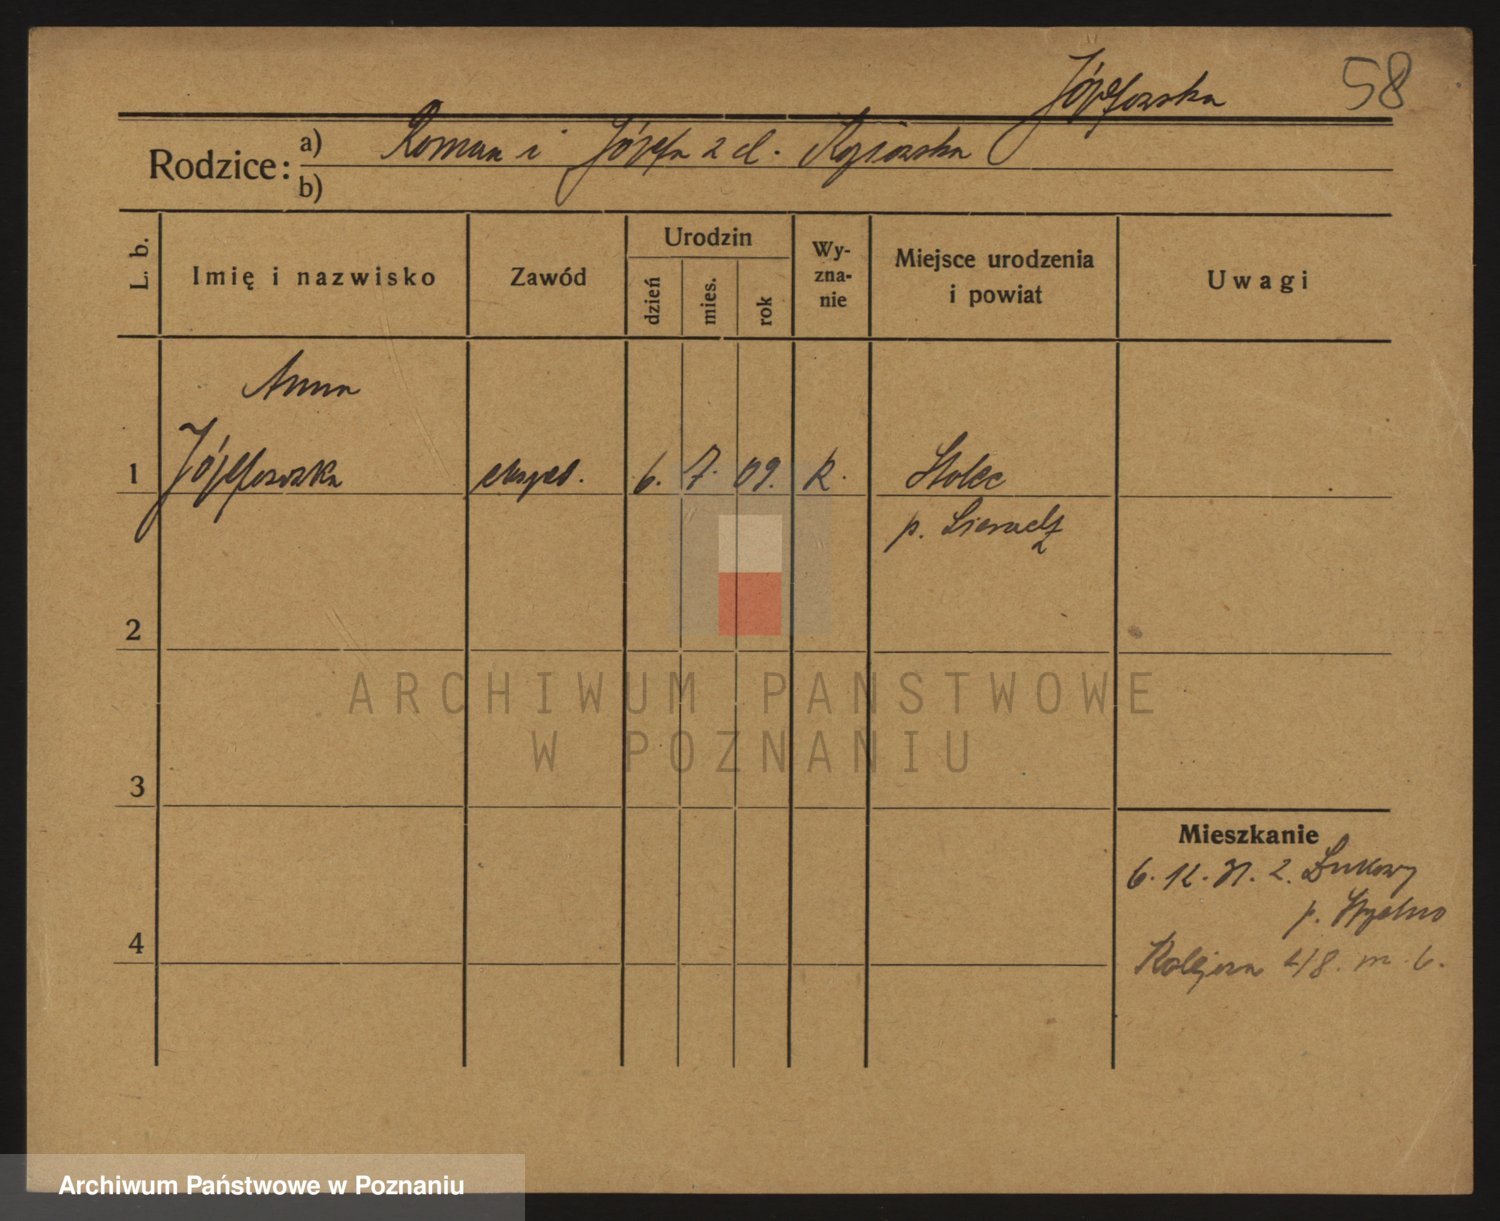 58
Józefowska
Rodzice: a) Roman i Józefa z d.
b)
L. b.
Imię i nazwisko
Zawód
Urodzin
dzień
mies.
rok
Wy-
zna-
nie
Miejsce urodzenia
i powiat
Uwagi
Anna
1 Józefowska eksped. 6. 7. 09. R. Stolec
p. Sieradz
2
3
4
Mieszkanie
6. 12. 31. z
p.
Kolejowa 48. m. 6.
ARCHIWUM PAŃSTWOWE
W POZNANIU
Archiwum Państwowe w Poznaniu